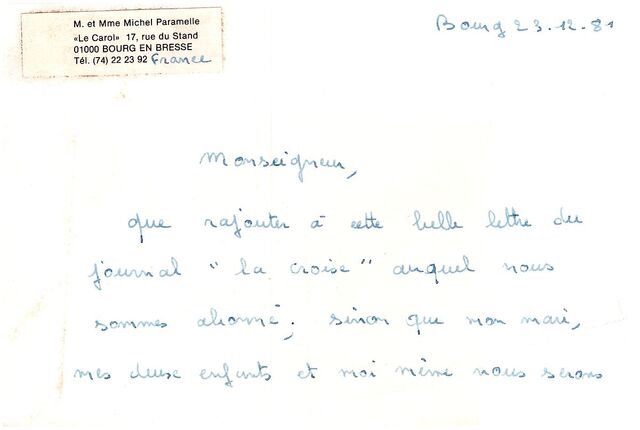 M. et Mme Michel Paramelle
«Le Carol» 17, rue du Stand
01000 BOURG EN BRESSE
Tél. (74) 22 23 92 France
Bourg 23.12.81
Monseigneur,
que rajouter à cette belle lettre du
journal "la croise" auquel nous
sommes abonné; sinon que mon mari,
mes deuse enfants et moi même nous serons